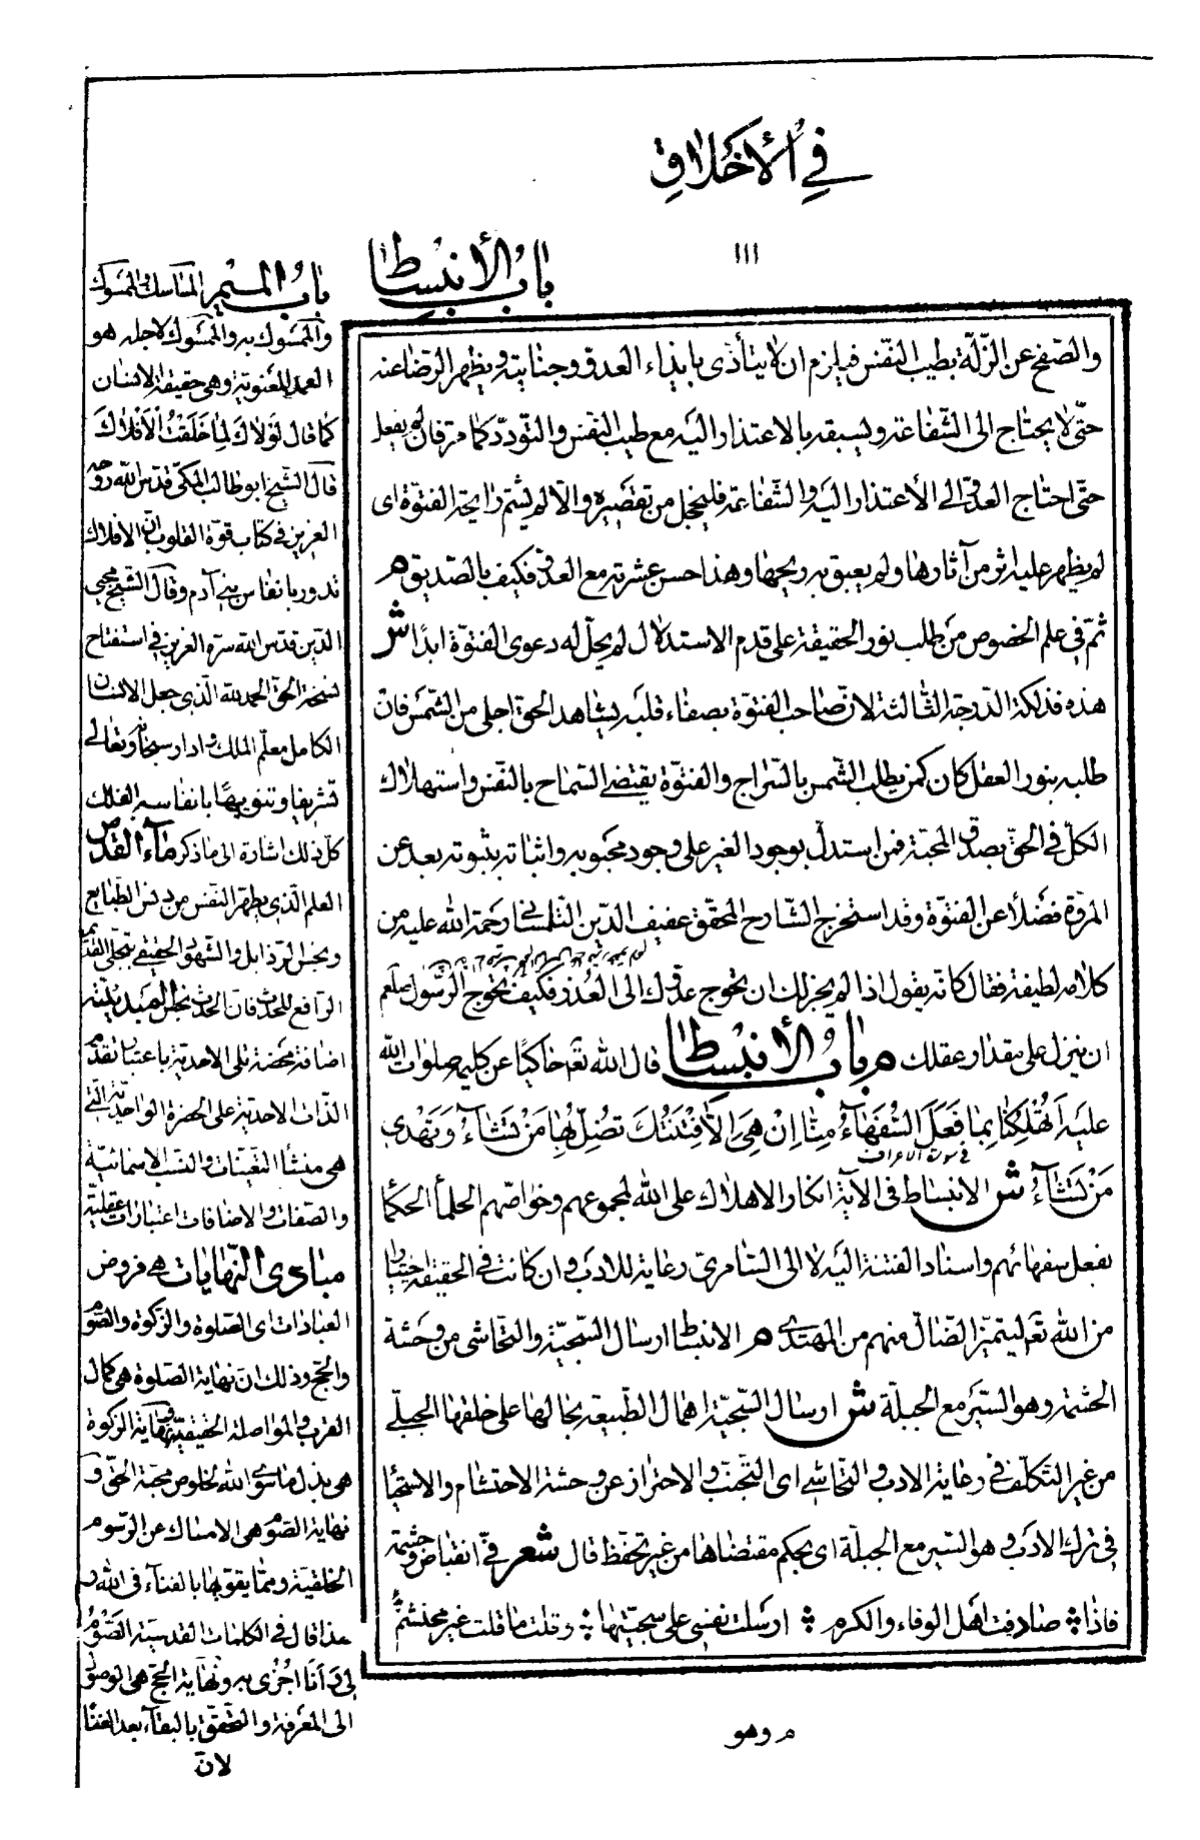 في الأخلاق
١١١
باب الأنبساط
والصّفح عن الزّلّة بطيب النّفس فيلزم ان لا يتأذى بايذاء العدوّ وجنايته ويظهر الرّضا عنه
حتّى لا يحتاج الى الشّفاعة ويسبقه بالاعتذار اليه مع طيب النفس والتودّد كما مرّ فان لم يفعل
حتى احتاج العدوّ الى الأعتذار اليه والشّفاعة فليخجل من تقصيره والّا لم يشتم رايحة الفتوّة اى
لم يظهر عليه اثر من آثارها ولم يعبق به ريحها وهذا حسن عشرته مع العدوّ فكيف بالصّديق م
ثمّ في علم الخصوص من طلب نور الحقيقة على قدم الاستدلال لم يحلّ له دعوى الفتوّة ابدًا ش
هذه فذلكة الدّرجة الثّالثة لانّ صاحب الفتوّة بصفاء قلبه يشاهد الحقّ اجلى من الشّمس فان
طلبه بنور العقل كان كمن يطلب الشّمس بالسّراج والفتوّة يقتضى السّماح بالنّفس واستهلاك
الكلّ في الحقّ بصدق المحبّة فمن استدلّ بوجود الغير على وجود محبوبه واثباته بثبوته بعد عن
المروّة فضلًا عن الفتوّة وقد استخرج الشّارح المحقّق عفيف الدّين التّلمسانى رحمة الله عليه من
كلامه لطيفة فقال كانّه يقول اذا لم يجز لك ان تحوج عدوّك الى العُذر فكيف تحوج الرّسول صلعم
ان ينزل على مقدار عقلك م باب الأنبساط قال الله تعـ حاكيًا عن كليمه صلوات الله
عليه اَتُهْلِكُنا بِما فَعَلَ السُّفَهاءُ مِنّا اِنْ هِىَ اِلّا فِتْنَتُكَ تُضِلُّ بِها مَنْ تَشاءُ وَتَهْدى
في سورة الاعراف
مَنْ تَشاءُ ش الانبساط في الآية انكار الاهلاك على الله لمجموعهم وخواصّهم الحلمأ الحكمأ
بفعل سفهائهم واسناد الفتنة اليه لا الى السّامريّ رعاية للادب وان كانت في الحقيقة اختبارا
من الله تعـ ليتميّز الضّالّ منهم من المهتدى م الانبساط ارسال السّجيّة والتّحاشى من وحشة
الحشمة وهو السّير مع الجبلّة ش ارسال السّجيّة اهمال الطّبيعة بحالها على خلقها الجبلّي
من غير التّكلّف في رعاية الادب والتّحاشى اى التّجنّب والاحتراز عن وحشة الاحتشام والاستحيا
في ترك الادب وهو السّير مع الجبلّة اى بحكم مقتضاها من غير تحفّظ قال شعر فيّ انقباض وحشمة
فاذا ؞ صادفت اهل الوفاء والكرم ؞ ارسلت نفسى على سجيّتها ؞ وقلت ما قلت غير محتشم
م وهو
باب الميم الماسك والممسوك
والممسوك به والممسوك لاجله هو
العمد المعنوية وهى حقيقة الانسان
كما قال لولاك لما خلقتُ الأفلاك
قال الشّيخ ابو طالب المكّى قدّس الله روحه
العزيز في كتاب قوّة القلوب انّ الافلاك
تدور بانفاس بنى آدم وقال الشّيخ محيى
الدّين قدّس الله سرّه العزيز في استفتاح
نسخة الحقّ الحمد لله الّذى جعل الانسان
الكامل معلّم الملك وادار سبحانه وتعالى
تشريفا وتنويهًا بانفاسه الفلك
كلّ ذلك اشارة الى ما ذكر ماء القدس
العلم الّذى يطهر النّفس من دنس الطّبايع
ونجس الرّذايل والشّهود الحقيقى بتجلّى القديم
الرّافع للحدث فان الحدث نجس المبدئيّة
اضافة محضة تلى الاحدية باعتبار تقدّم
الذّات الاحديّة على الحضرة الواحديّة الّتى
هى منشأ التّعيّنات والنّسب الاسمائيّة
والصّفات والاضافات اعتبارات عقليّة
مبادى النّهايات هى فروض
العبادات اى الصّلوة والزّكوة والصّوم
والحجّ وذلك انّ نهاية الصّلوة هى كمال
القرب والمواصلة الحقيقيّة ونهاية الزّكوة
هى بذل ماسوى الله لخلوص محبّة الحقّ و
نهاية الصّوم هى الامساك عن الرّسوم
الخلقيّة وما يقوّيها بالفناء فى الله و
هذا قال في الكلمات القدسيّة الصّوم
لى وَاَنَا اَجْزى به ونهاية الحجّ هى الوصول
الى المعرفة والتّحقّق بالبقاء بعد الفناء
لانّ